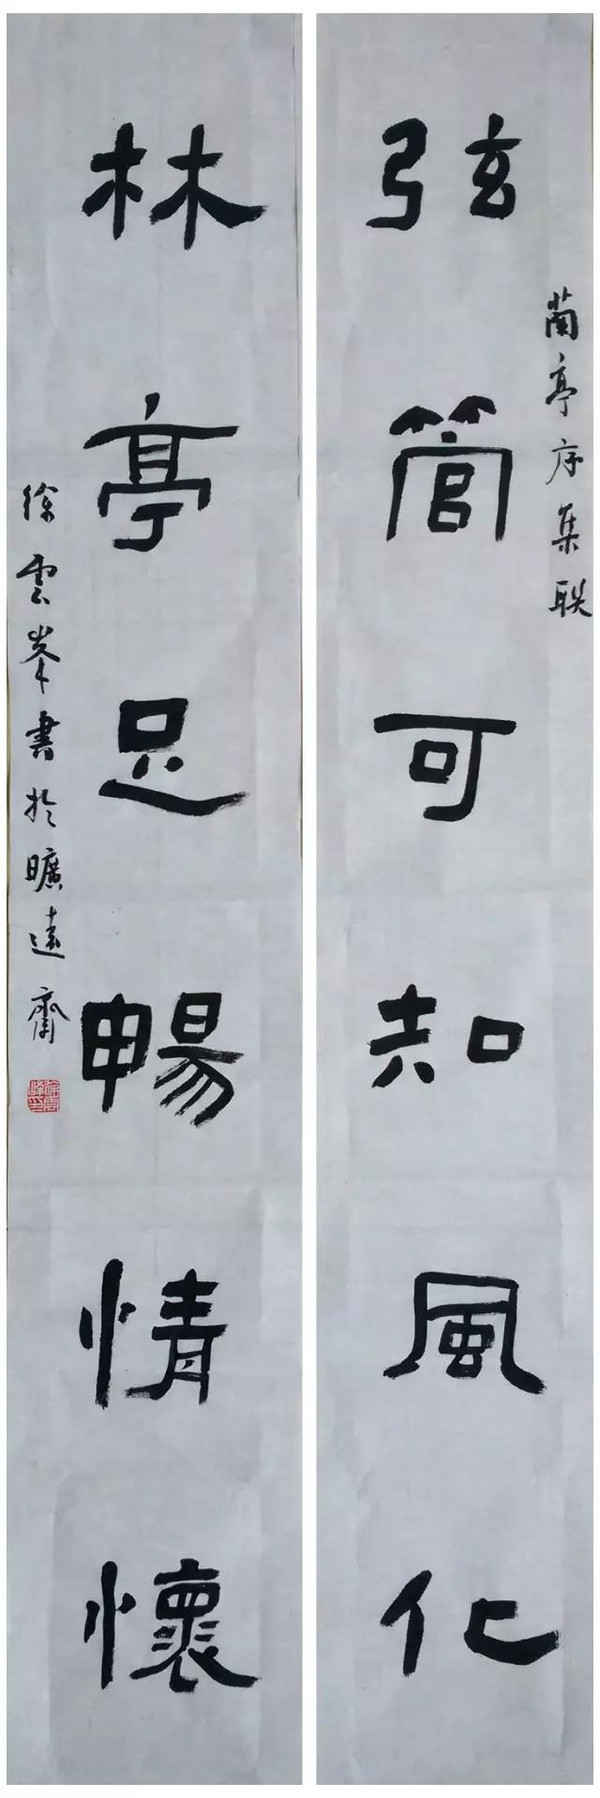 蘭亭序集联
弦管可知風化
林亭足暢情懷
徐雲峯書於曠遠齋